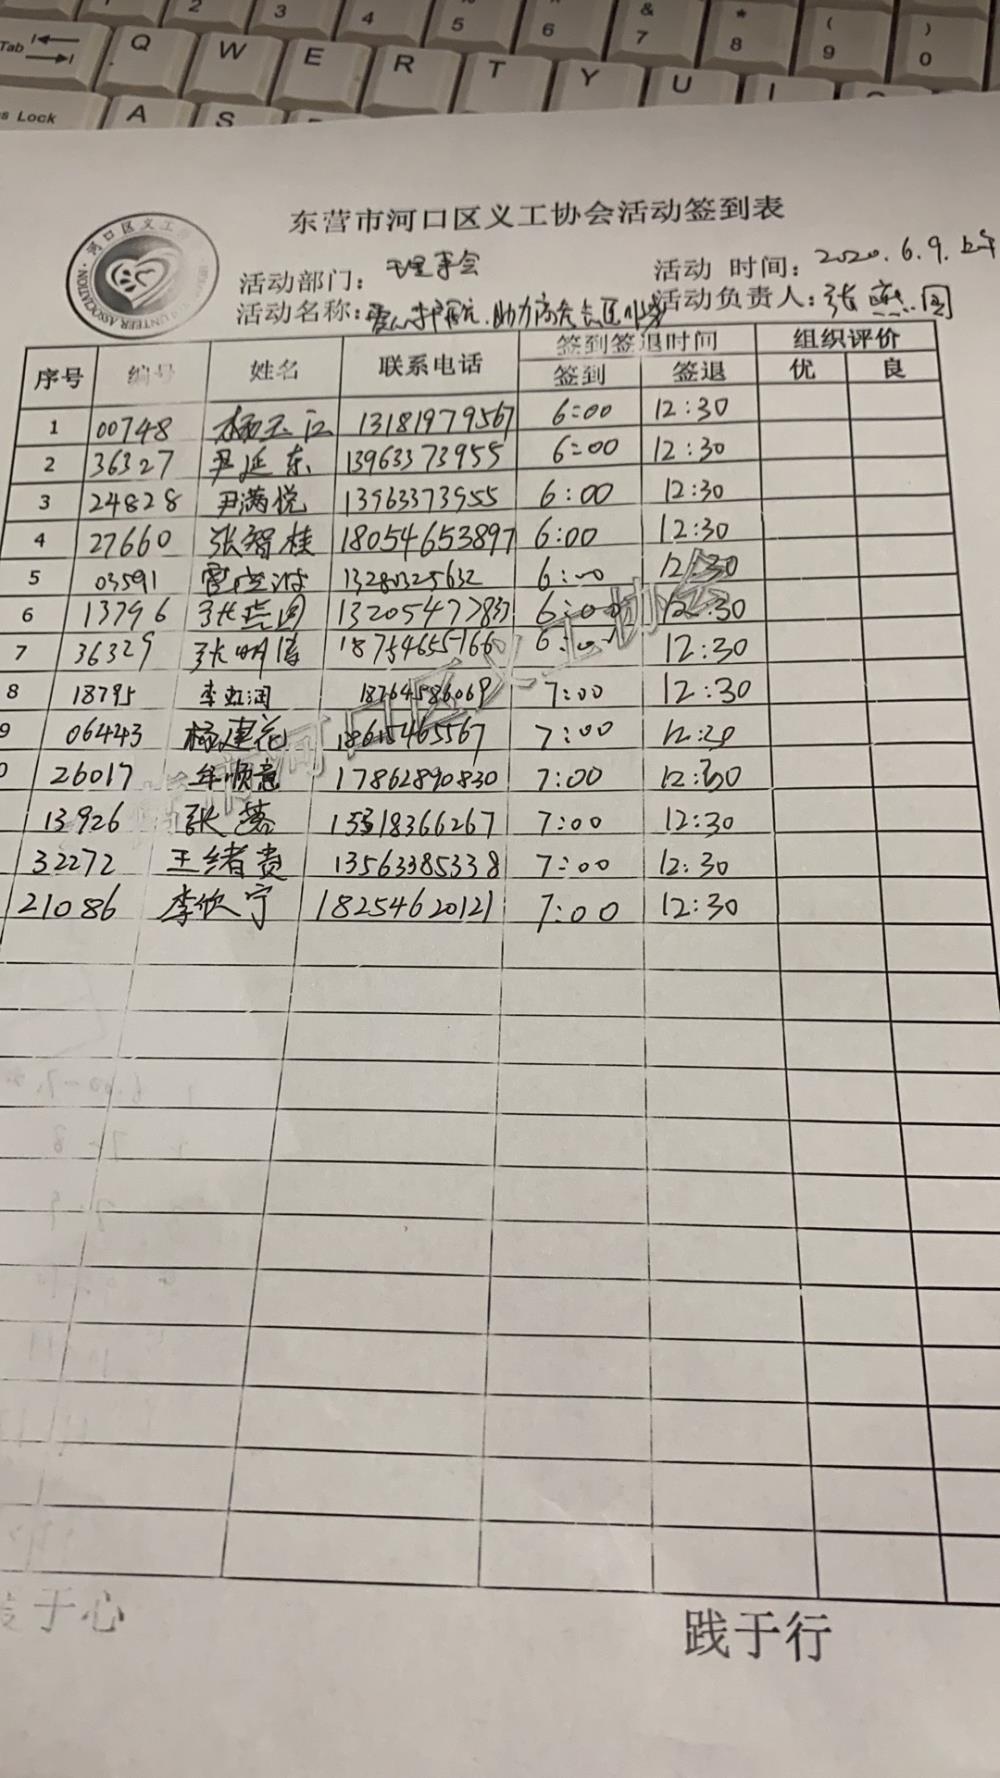 Tab Q W E R T Y U I
2 3 4 5 6 & 7 * 8 ( 9 ) 0
s Lock A S
东营市河口区义工协会活动签到表
活动部门: 理事会 活动 时间: 2020.6.9.上午
活动名称: 爱心护航.助力 活动负责人: 张燕园
序号 编号 姓名 联系电话 签到签退时间 组织评价
签到 签退 优 良
1 00748 杨玉江 13181979567 6:00 12:30
2 36327 尹延东 13963373955 6:00 12:30
3 24828 尹满悦 13963373955 6:00 12:30
4 27660 张智桂 18054653897 6:00 12:30
5 03591 13280325632 6:00 12:30
6 13796 张燕园 13205477837 6:00 12:30
7 36329 张明倩 18754655766 6:00 12:30
8 18795 李虹润 18764586069 7:00 12:30
9 064243 杨建花 18615465567 7:00 12:20
0 26017 牟顺意 17862890830 7:00 12:30
13926 张蕊 15318366267 7:00 12:30
32272 王绪贵 13563385338 7:00 12:30
21086 李欣宁 18254620121 7:00 12:30
河口区义工协会
于心 践于行